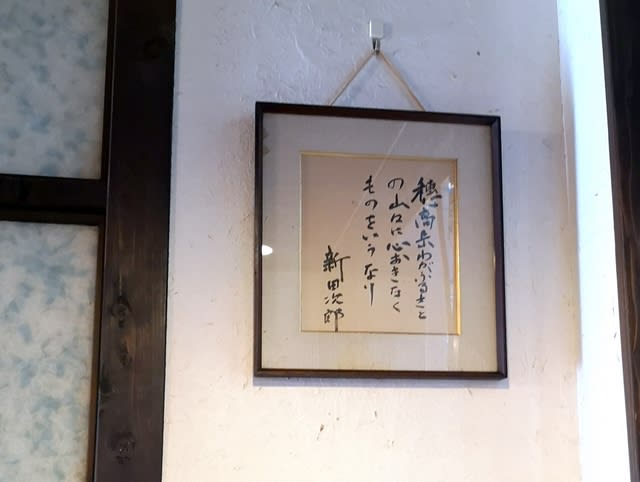 穂高来わがふるさと
の山々に心おきなく
ものをいうなり
新田次郎